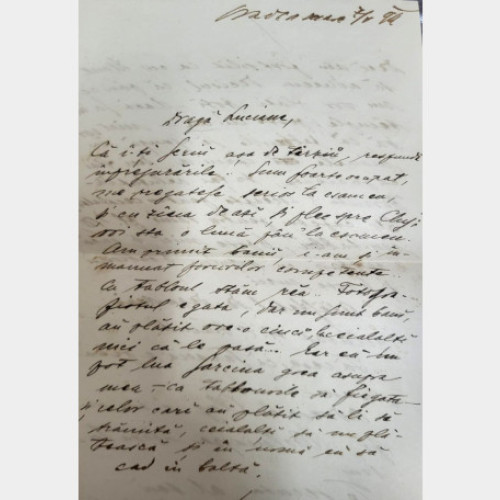 Baia mare 7/V 92
Dragă Luciane,
Că îți scriu așa de târziu, respunde
împrejurările. Sunt foarte ocupat,
me pregătesc serios la examen,
și cu ziua de azi, și plec spre Cluj
voi sta o lună până la escamen.
Am primit banii, i-am și în-
manuat forurilor competente.
Cu tabloul stăm rĕu. Fotogra-
fistul e gata, dar nu sunt bani
au plătit vre-o cinci, ceialalți
nici că le pasă. Iar eu nu
pot lua sarcina grea asupra
mea - ca tablourile să fie gata
și celor cari au plătit să li se
trămită, ceialalți să nu plă-
tească și în urmă eu să
cad în baltă.